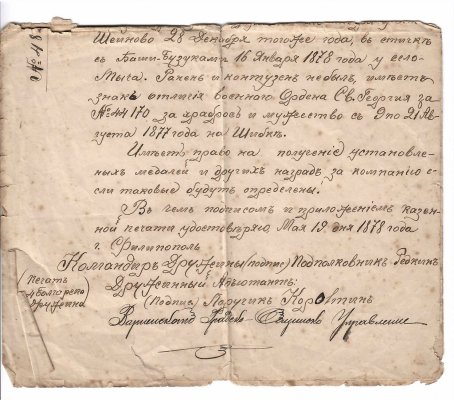 № 48
Шейново 28 Декабря тогоже года, въ стычкѣ
съ Баши-Бузуками 16 Января 1878 года у село-
Мыга. Раненъ и контуженъ не былъ, имѣетъ
знакъ отличія военнаго Ордена Св. Георгія за
№ 44170 за храбрость и мужество съ 9 по 21 Ав-
густа 1877 года на Шибкѣ.
Имѣетъ право на полученіе установлен-
ныхъ медалей и другихъ наградъ за компанію е-
сли таковые будутъ опредѣлены.
Въ чемъ подписомъ и приложеніемъ казен-
ной печати удостовѣряю Мая 19 дня 1878 года
г. Филипополь
Командиръ Дружины (подпис) Подполковникъ Редкинъ
(Печать
4 Болгарско
Дружина)
Дружинный Адъютантъ:
(Подпис) Поручикъ
Варненското Градско-Общинско Управление